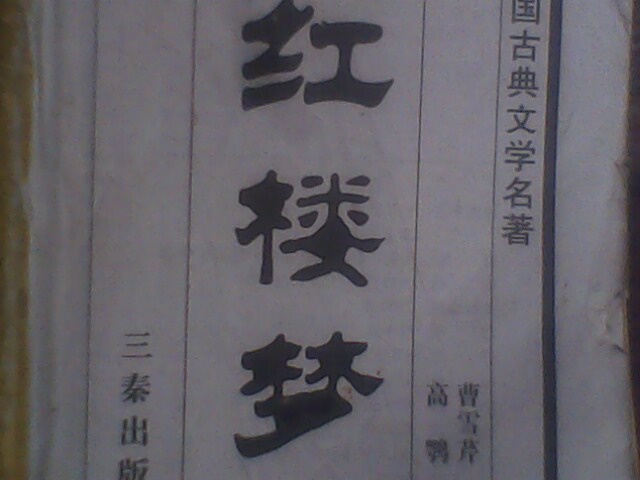 国古典文学名著
曹雪芹
高鹗
红楼梦
三秦出版